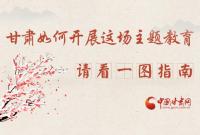 甘肃如何开展这场主题教育
请看一图指南
中国甘肃网